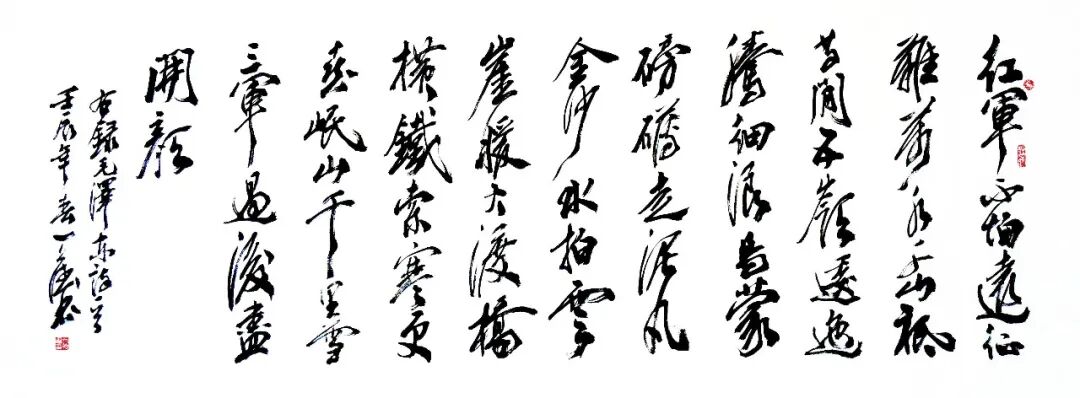 紅軍不怕遠征
難萬水千山祇
等閒五嶺逶迤
騰細浪烏蒙
磅礴走泥丸
金沙水拍雲
崖暖大渡橋
橫鐵索寒更
喜岷山千里雪
三軍過後盡
開顏
右錄毛澤東詩首
壬辰年春一